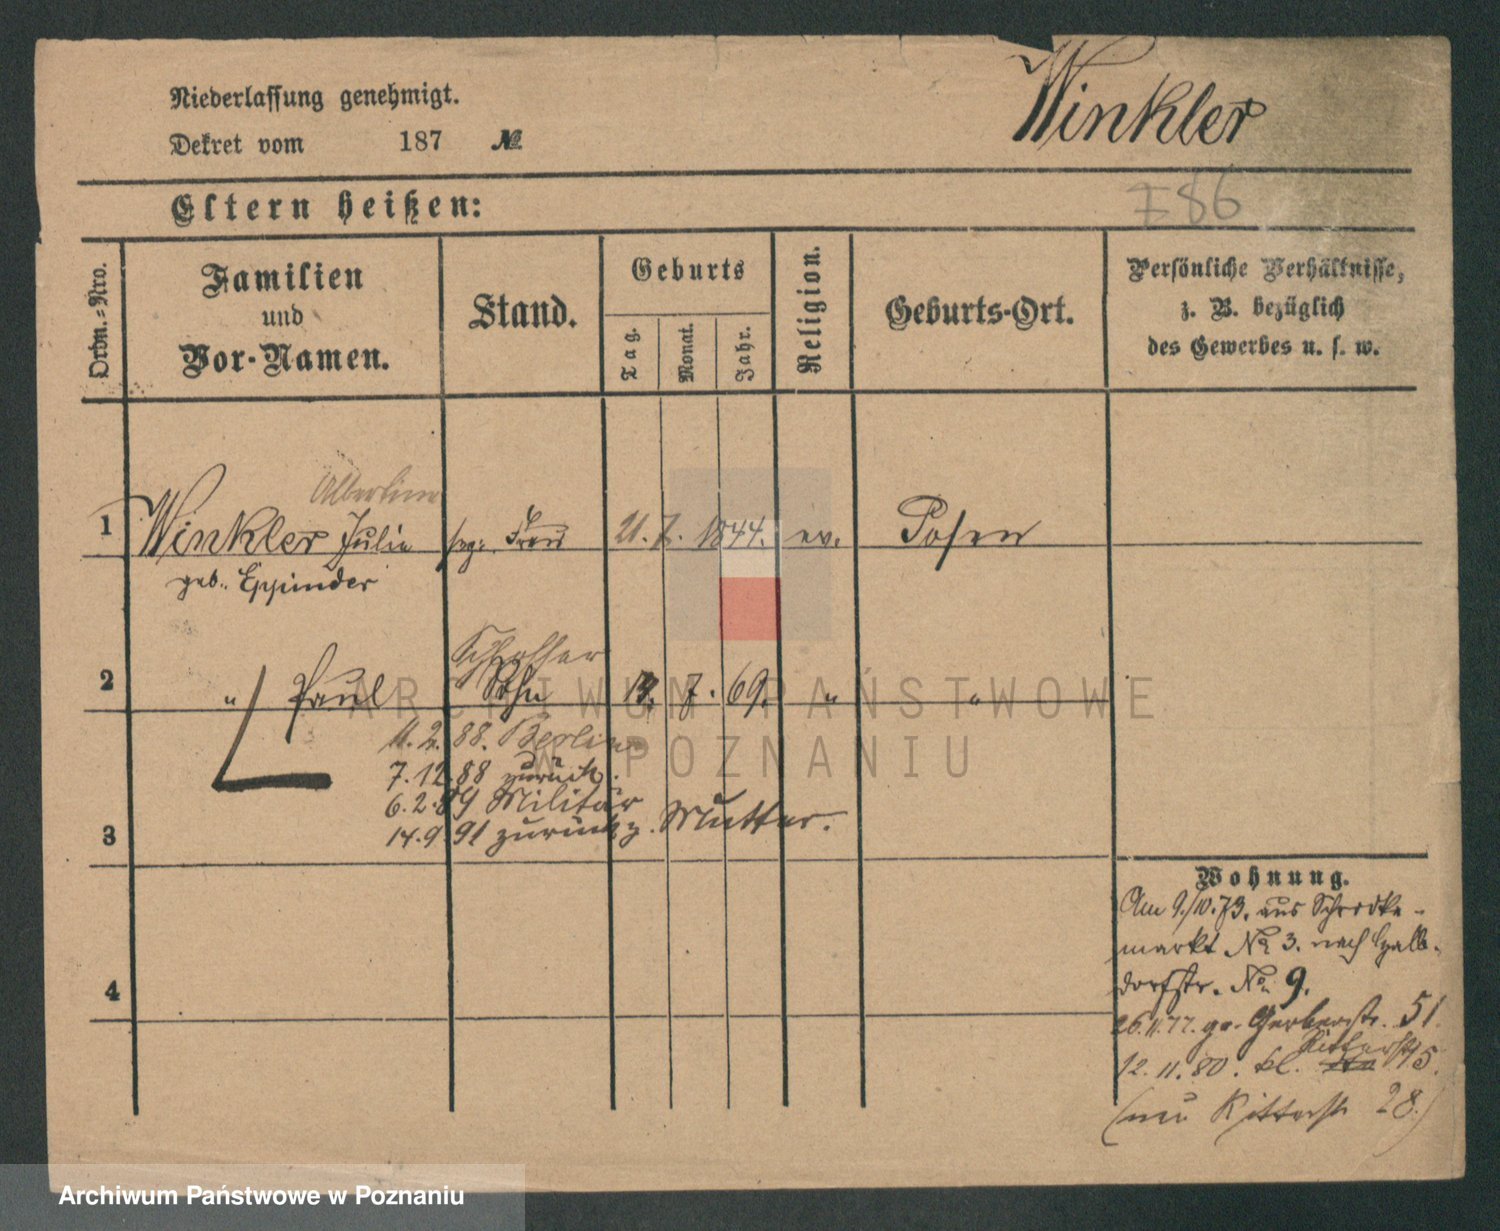 Niederlassung genehmigt.
Winkler
Dekret vom 187 №
Eltern heißen:
86
Ordn.=Nro.
Familien
und
Vor-Namen.
Stand.
Geburts
Tag.
Monat.
Jahr.
Religion.
Geburts-Ort.
Persönliche Verhältnisse,
z. B. bezüglich
des Gewerbes u. s. w.
Albertine
1 Winkler Julie sep. Frau 21. 7. 1844. ev. Posen
geb.
Schlosser
2 " Paul Sohn 7. 69. " "
11. 2. 88. Berlin
7. 12. 88 zurück.
6. 2. 89 Militär
14. 9 91 zurück z. Mutter.
3
Wohnung.
Am 9./10. 73. aus Schrodka-
markt No 3. nach Halb-
dorfstr. No. 9.
4
26. 11. 77. gr. Gerberstr. 51.
Ritterstr
12. 11. 80. kl. 15.
(neu Ritterstr 28.)
ARCHIWUM PAŃSTWOWE
W POZNANIU
Archiwum Państwowe w Poznaniu